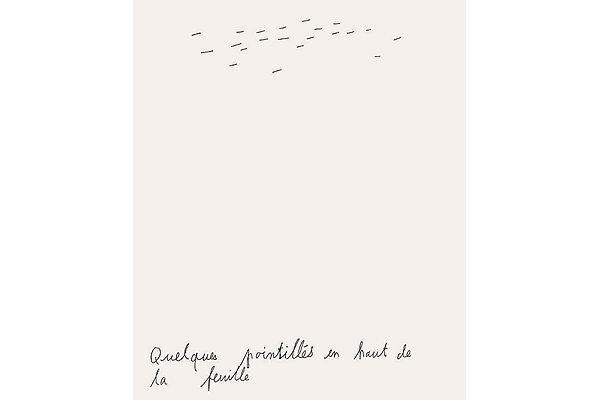 Quelques pointillés en haut de
la feuille